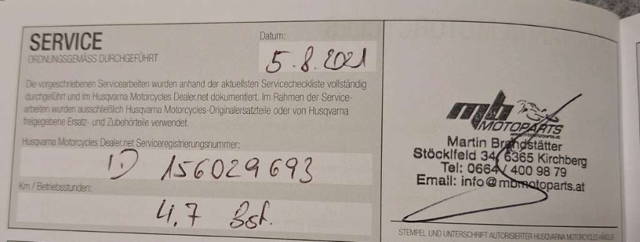 SERVICE
ORDNUNGSGEMÄSS DURCHGEFÜHRT
Datum:
5.8.2021
Die vorgeschriebenen Servicearbeiten wurden anhand der aktuellsten Servicecheckliste vollständig
durchgeführt und im Husqvarna Motorcycles Dealer.net dokumentiert. Im Rahmen der Service-
arbeiten wurden ausschließlich Husqvarna-Motorcycles-Originalersatzteile oder von Husqvarna
freigegebene Ersatz- und Zubehörteile verwendet.
Husqvarna Motorcycles Dealer.net Serviceregistrierungsnummer:
ID 156029693
Km / Betriebsstunden:
4,7 Bst.
mb
MOTOPARTS
Martin Brandstätter
Stöcklfeld 34, 6365 Kirchberg
Tel: 0664/ 400 98 79
Email: info@mbmotoparts.at
STEMPEL UND UNTERSCHRIFT AUTORISIERTER HUSQVARNA MOTORCYCLES-HÄNDLER